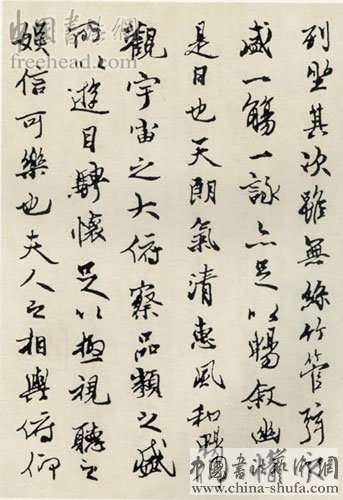 列坐其次雖無絲竹管弦之
盛一觴一詠亦足以暢敘幽
是日也天朗氣清惠風和暢
觀宇宙之大俯察品類之盛
所以遊目騁懷足以極視聽之
娛信可樂也夫人之相與俯仰
中國書法藝術網
www.china-shufa.com